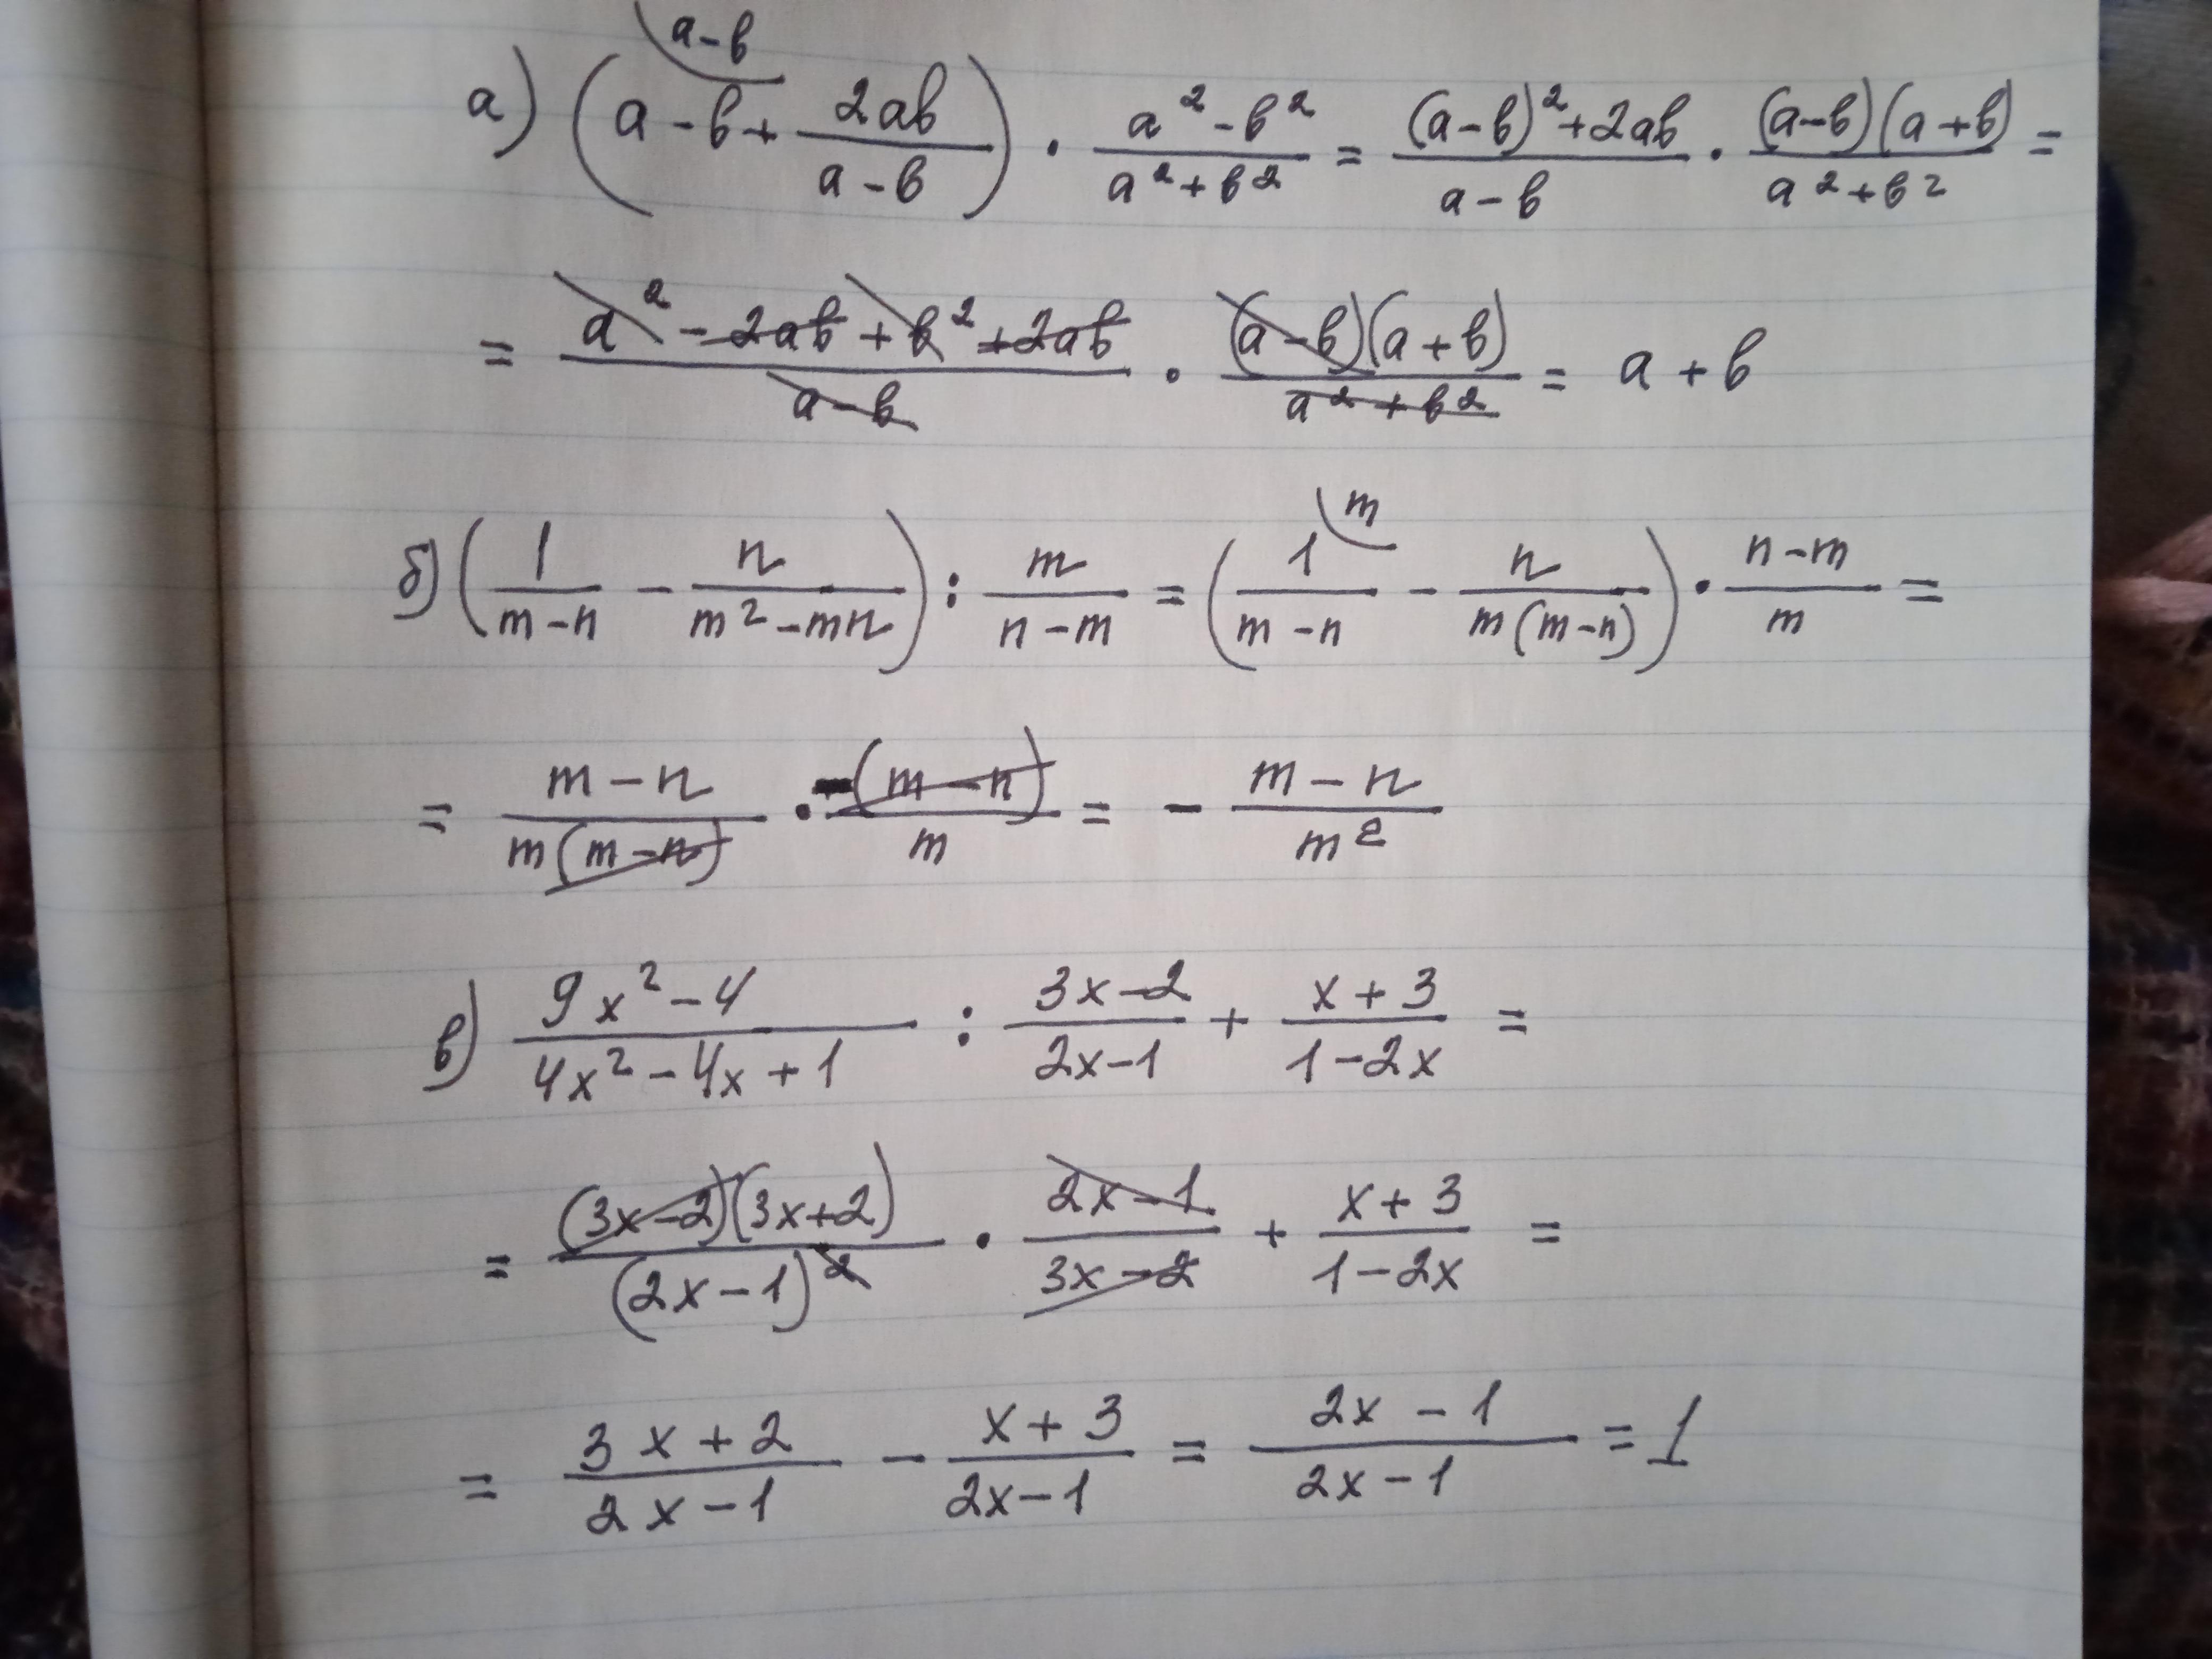 а) (a - b + 2ab/(a - b)) · (a² - b²)/(a² + b²) = ((a - b)² + 2ab)/(a - b) · ((a - b)(a + b))/(a² + b²) =
= (a² - 2ab + b² + 2ab)/(a - b) · ((a - b)(a + b))/(a² + b²) = a + b
б) (1/(m - n) - n/(m² - mn)) : m/(n - m) = (1/(m - n) - n/(m(m - n))) · (n - m)/m =
= (m - n)/(m(m - n)) · (-(m - n))/m = - (m - n)/m²
в) (9x² - 4)/(4x² - 4x + 1) : (3x - 2)/(2x - 1) + (x + 3)/(1 - 2x) =
= ((3x - 2)(3x + 2))/(2x - 1)² · (2x - 1)/(3x - 2) + (x + 3)/(1 - 2x) =
= (3x + 2)/(2x - 1) - (x + 3)/(2x - 1) = (2x - 1)/(2x - 1) = 1